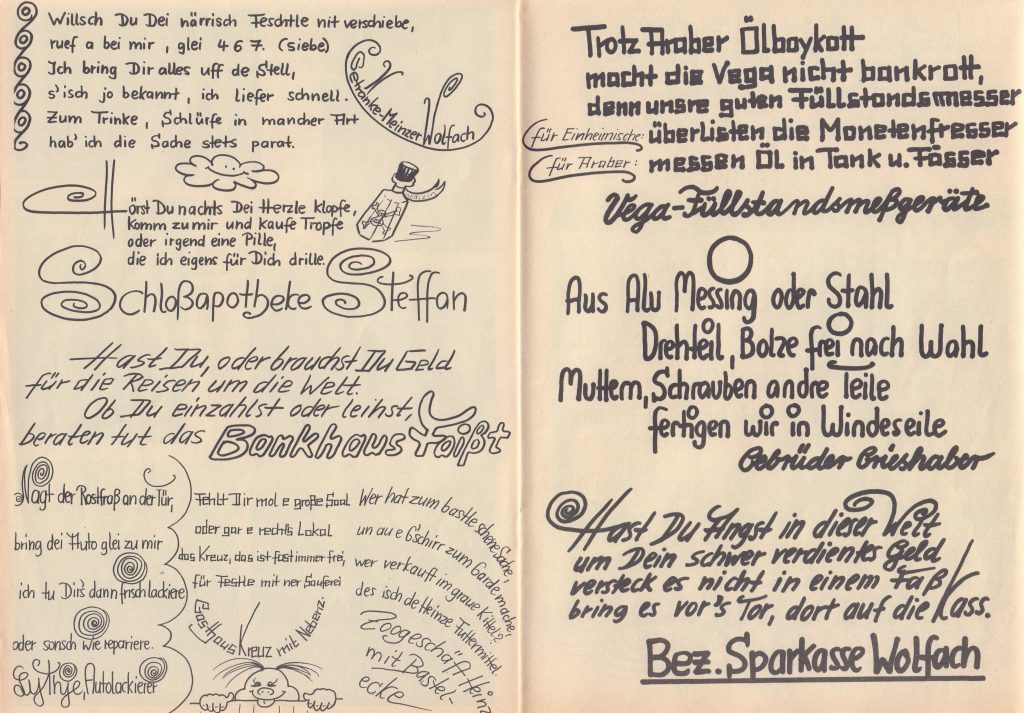 Willsch Du Dei närrisch Feschtle nit verschiebe,
ruef a bei mir, glei 467. (siebe)
Ich bring Dir alles uff de Stell,
s'isch jo bekannt, ich liefer schnell.
Zum Trinke, Schlürfe in mancher Art
hab' ich die Sache stets parat.
Getränke-Meinzer Wolfach
Hörst Du nachts Dei Herzle klopfe,
Komm zu mir und kaufe Tropfe
oder irgend eine Pille,
die ich eigens für Dich drille.
Schloßapotheke Steffan
Hast Du, oder brauchst Du Geld
für die Reisen um die Welt.
Ob Du einzahlst oder leihst,
beraten tut das Bankhaus Faißt
Nagt der Rostfraß an der Tür,
bring dei Auto glei zu mir
ich tu Dir's dann frisch lackiere
oder sonsch wie repariere.
Lythje, Autolackierer
Fehlt Dir mol e große Saal
oder gar e rechts Lokal
das Kreuz, das ist fast immer frei,
für Feste mit ner Sauferei
Gasthaus Kreuz mit Nebenz.
Wer hat zum bastle schene Sache,
un au e G'schirr zum Garde mache,
wer verkauft im graue Kittel?
des isch de Heinze Futtermittel.
Zoogeschäft Heinz
mit Bastel-
ecke
Trotz Araber Ölboykott
macht die Vega nicht bankrott,
denn unsre guten Füllstandsmesser
für Einheimische: überlisten die Monetenfresser
für Araber: messen Öl in Tank u. Fässer
Vega-Füllstandsmeßgeräte
Aus Alu Messing oder Stahl
Drehteil, Bolze frei nach Wahl
Muttern, Schrauben andre Teile
fertigen wir in Windeseile
Gebrüder Grieshaber
Hast Du Angst in dieser Welt
um Dein schwer verdientes Geld
versteck es nicht in einem Faß
bring es vor's Tor, dort auf die Kass.
Bez. Sparkasse Wolfach